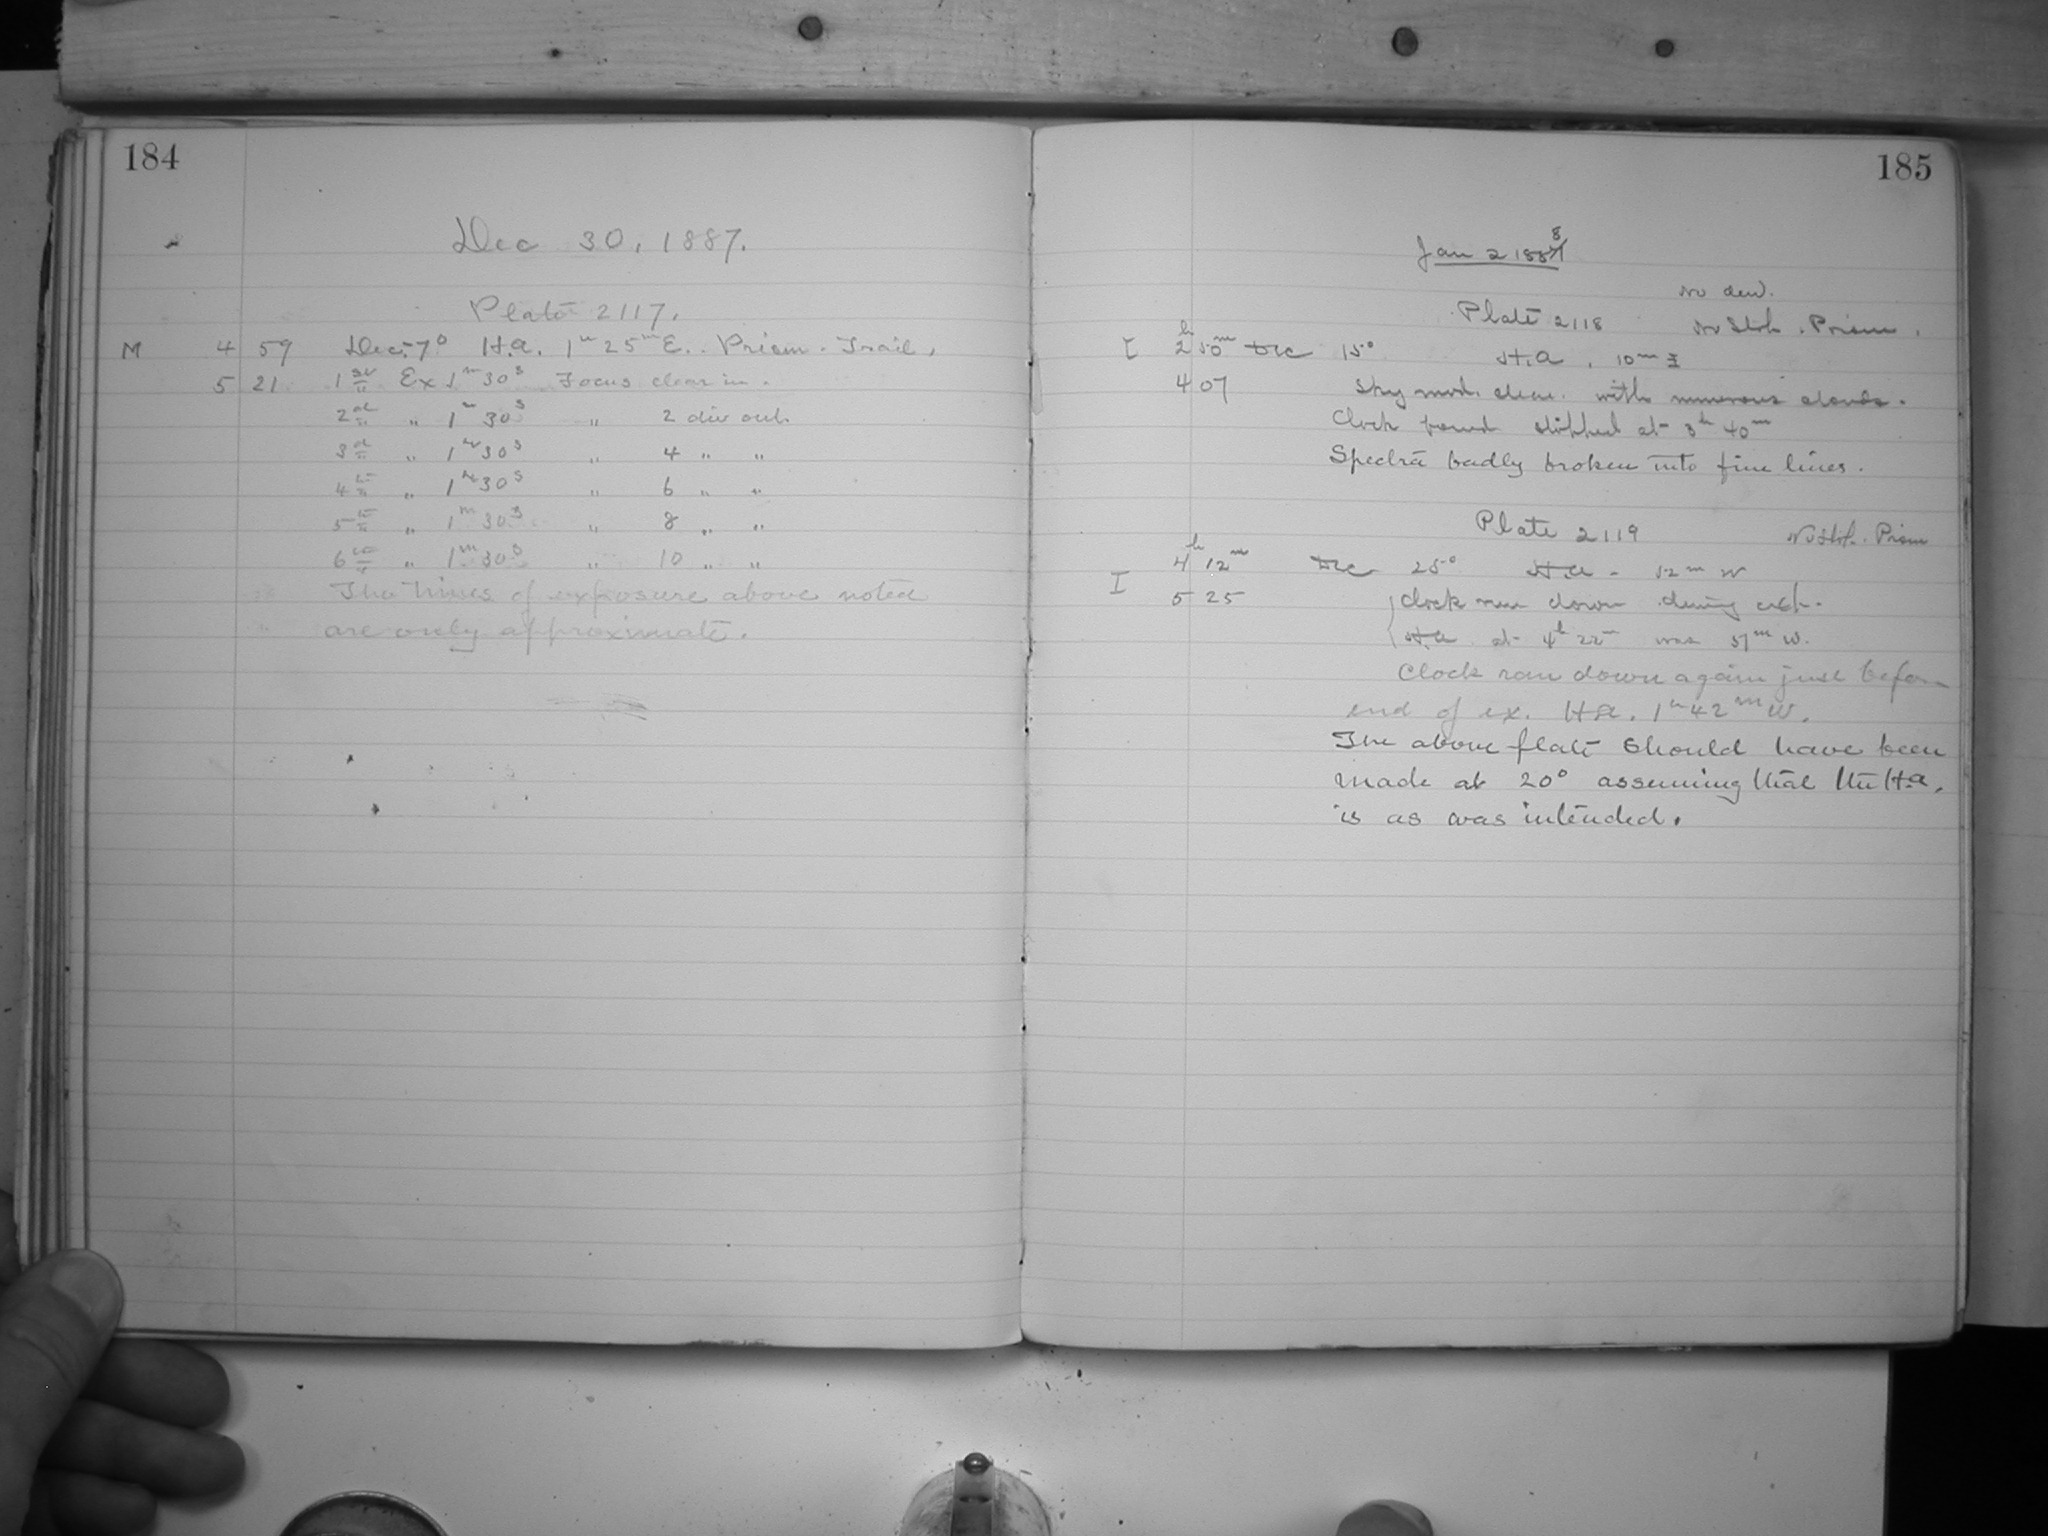 184
Dec 30, 1887.
Plate 2117.
M 4 59 Dec. 7° H.a. 1h 25m E. Prism. Trail.
5 21 1st Ex 1m 30s Focus clear in.
2d " 1m 30s " 2 div out.
3d " 1m 30s " 4 " "
4th " 1m 30s " 6 " "
5th " 1m 30s " 8 " "
6th " 1m 30s " 10 " "
The times of exposure above noted
are only approximate.
185
Jan 2 1888
No dew.
Plate 2118 No Prism.
I 2h 50m Dec 15° H.a. 10m E
4 07 Sky mod. clear. with numerous clouds.
Clock found stopped at 3h 40m
Spectra badly broken into fine lines.
Plate 2119 Prism
I 4h 12m Dec 25° H.a - 52m W
5 25 Clock run down during exp.
H.a at 4h 22m was 51m W.
Clock ran down again just before
end of ex. H.a. 1h 42m W.
The above plate should have been
made at 20° assuming that the H.a.
is as was intended.